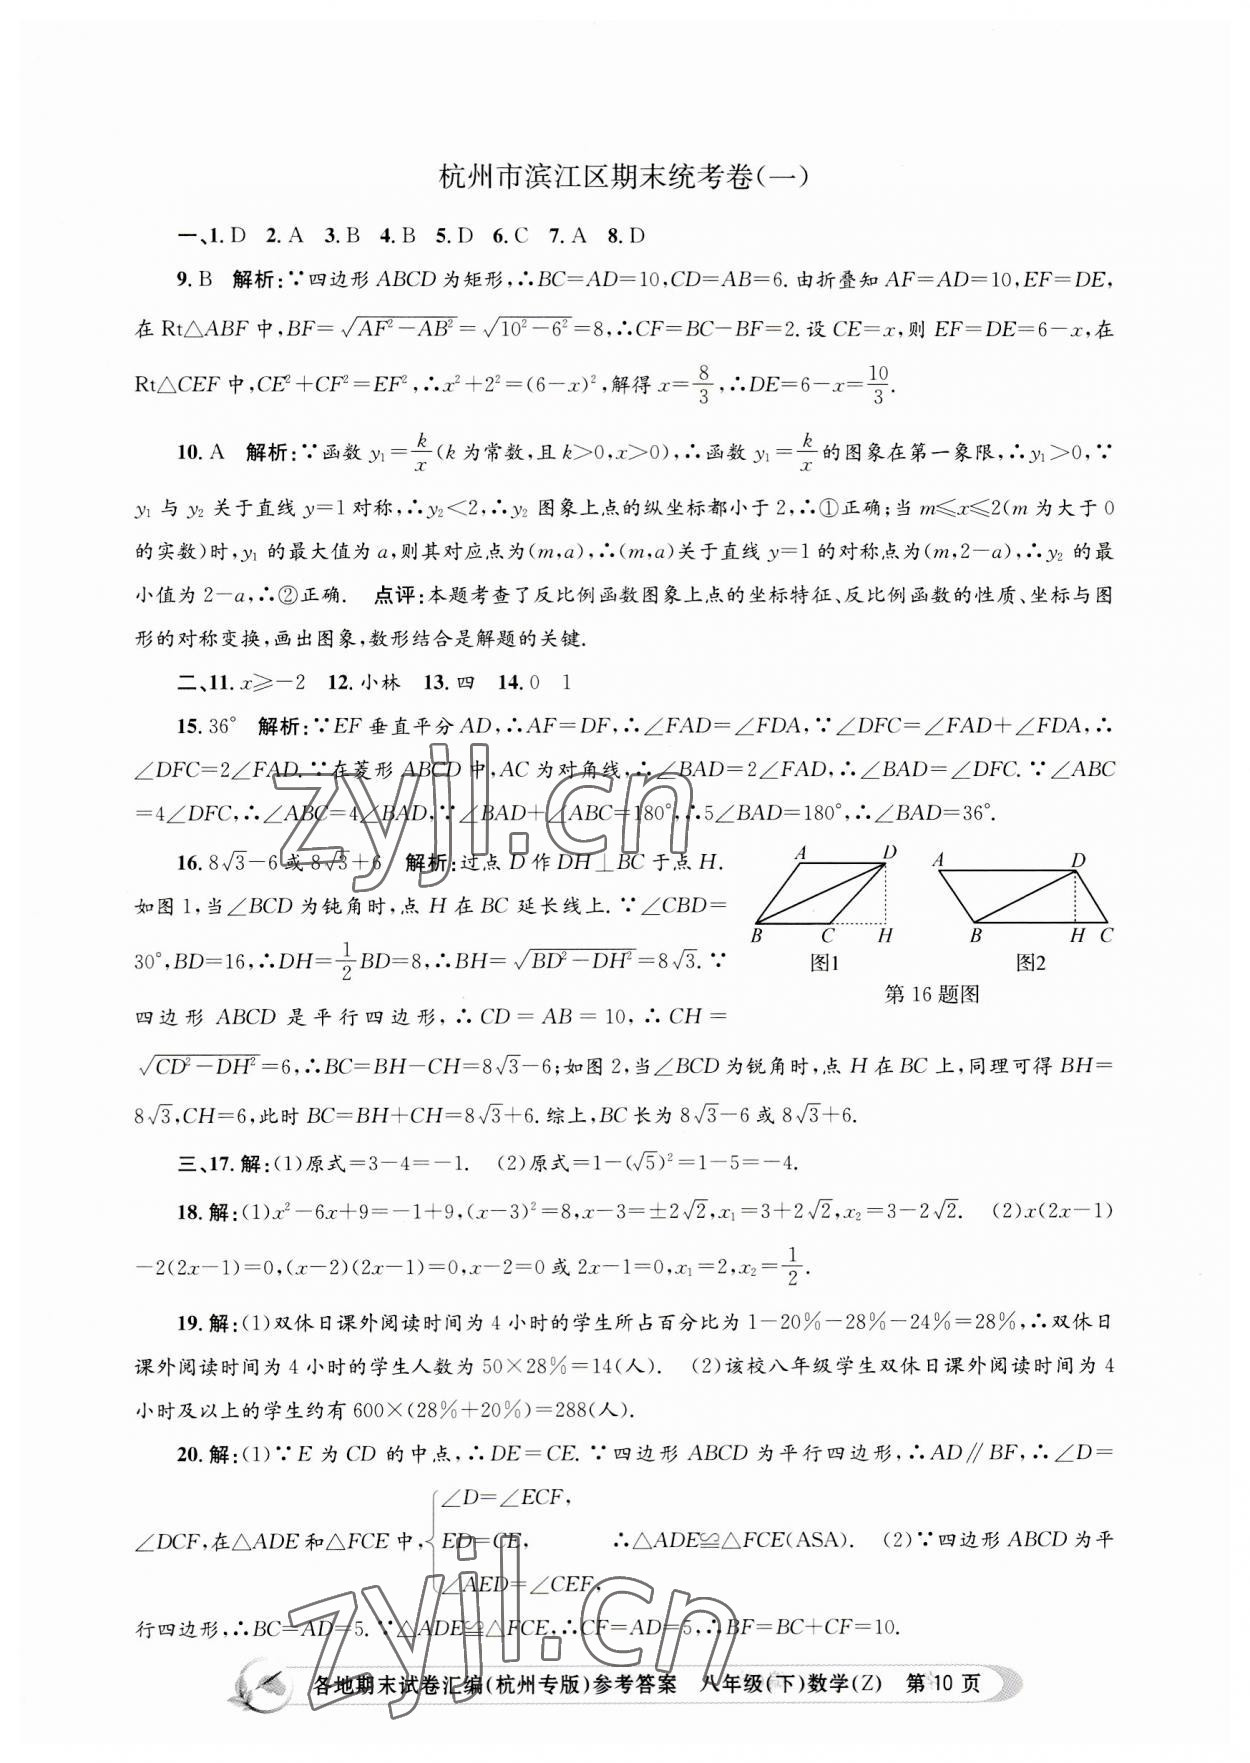 杭州市滨江区期末统考卷(一)
一、1. D 2. A 3. B 4. B 5. D 6. C 7. A 8. D
9. B 解析:∵四边形 ABCD 为矩形,∴BC=AD=10,CD=AB=6. 由折叠知 AF=AD=10,EF=DE,
在 Rt△ABF 中,BF=√(AF²-AB²)=√(10²-6²)=8,∴CF=BC-BF=2. 设 CE=x,则 EF=DE=6-x,在
Rt△CEF 中,CE²+CF²=EF²,∴x²+2²=(6-x)²,解得 x=8/3,∴DE=6-x=10/3.
10. A 解析:∵函数 y₁=k/x(k 为常数,且 k>0,x>0),∴函数 y₁=k/x 的图象在第一象限,∴y₁>0,∵
y₁ 与 y₂ 关于直线 y=1 对称,∴y₂<2,∴y₂ 图象上点的纵坐标都小于 2,∴①正确;当 m≤x≤2(m 为大于 0
的实数)时,y₁ 的最大值为 a,则其对应点为(m,a),∴(m,a)关于直线 y=1 的对称点为(m,2-a),∴y₂ 的最
小值为 2-a,∴②正确. 点评:本题考查了反比例函数图象上点的坐标特征、反比例函数的性质、坐标与图
形的对称变换,画出图象,数形结合是解题的关键.
二、11. x≥-2 12. 小林 13. 四 14. 0 1
15. 36° 解析:∵EF 垂直平分 AD,∴AF=DF,∴∠FAD=∠FDA,∵∠DFC=∠FAD+∠FDA,∴
∠DFC=2∠FAD. ∵在菱形 ABCD 中,AC 为对角线,∴∠BAD=2∠FAD,∴∠BAD=∠DFC. ∵∠ABC
=4∠DFC,∴∠ABC=4∠BAD,∵∠BAD+∠ABC=180°,∴5∠BAD=180°,∴∠BAD=36°.
16. 8√3-6 或 8√3+6 解析:过点 D 作 DH⊥BC 于点 H.
如图 1,当∠BCD 为钝角时,点 H 在 BC 延长线上. ∵∠CBD=
30°,BD=16,∴DH=1/2BD=8,∴BH=√(BD²-DH²)=8√3. ∵
四边形 ABCD 是平行四边形,∴CD=AB=10,∴CH=
√(CD²-DH²)=6,∴BC=BH-CH=8√3-6;如图 2,当∠BCD 为锐角时,点 H 在 BC 上,同理可得 BH=
8√3,CH=6,此时 BC=BH+CH=8√3+6. 综上,BC 长为 8√3-6 或 8√3+6.
A D
B C H
图1
A D
B H C
图2
第 16 题图
三、17. 解:(1)原式=3-4=-1. (2)原式=1-(√5)²=1-5=-4.
18. 解:(1)x²-6x+9=-1+9,(x-3)²=8,x-3=±2√2,x₁=3+2√2,x₂=3-2√2. (2)x(2x-1)
-2(2x-1)=0,(x-2)(2x-1)=0,x-2=0 或 2x-1=0,x₁=2,x₂=1/2.
19. 解:(1)双休日课外阅读时间为 4 小时的学生所占百分比为 1-20%-28%-24%=28%,∴双休日
课外阅读时间为 4 小时的学生人数为 50×28%=14(人). (2)该校八年级学生双休日课外阅读时间为 4
小时及以上的学生约有 600×(28%+20%)=288(人).
20. 解:(1)∵E 为 CD 的中点,∴DE=CE. ∵四边形 ABCD 为平行四边形,∴AD∥BF,∴∠D=
∠DCF,在△ADE 和△FCE 中,{∠D=∠ECF, ED=CE, ∠AED=∠CEF, ∴△ADE≌△FCE(ASA). (2)∵四边形 ABCD 为平
行四边形,∴BC=AD=5. ∵△ADE≌△FCE,∴CF=AD=5,∴BF=BC+CF=10.
各地期末试卷汇编(杭州专版)参考答案 八年级(下)数学(Z) 第 10 页
zyjl.cn
zyjl.cn